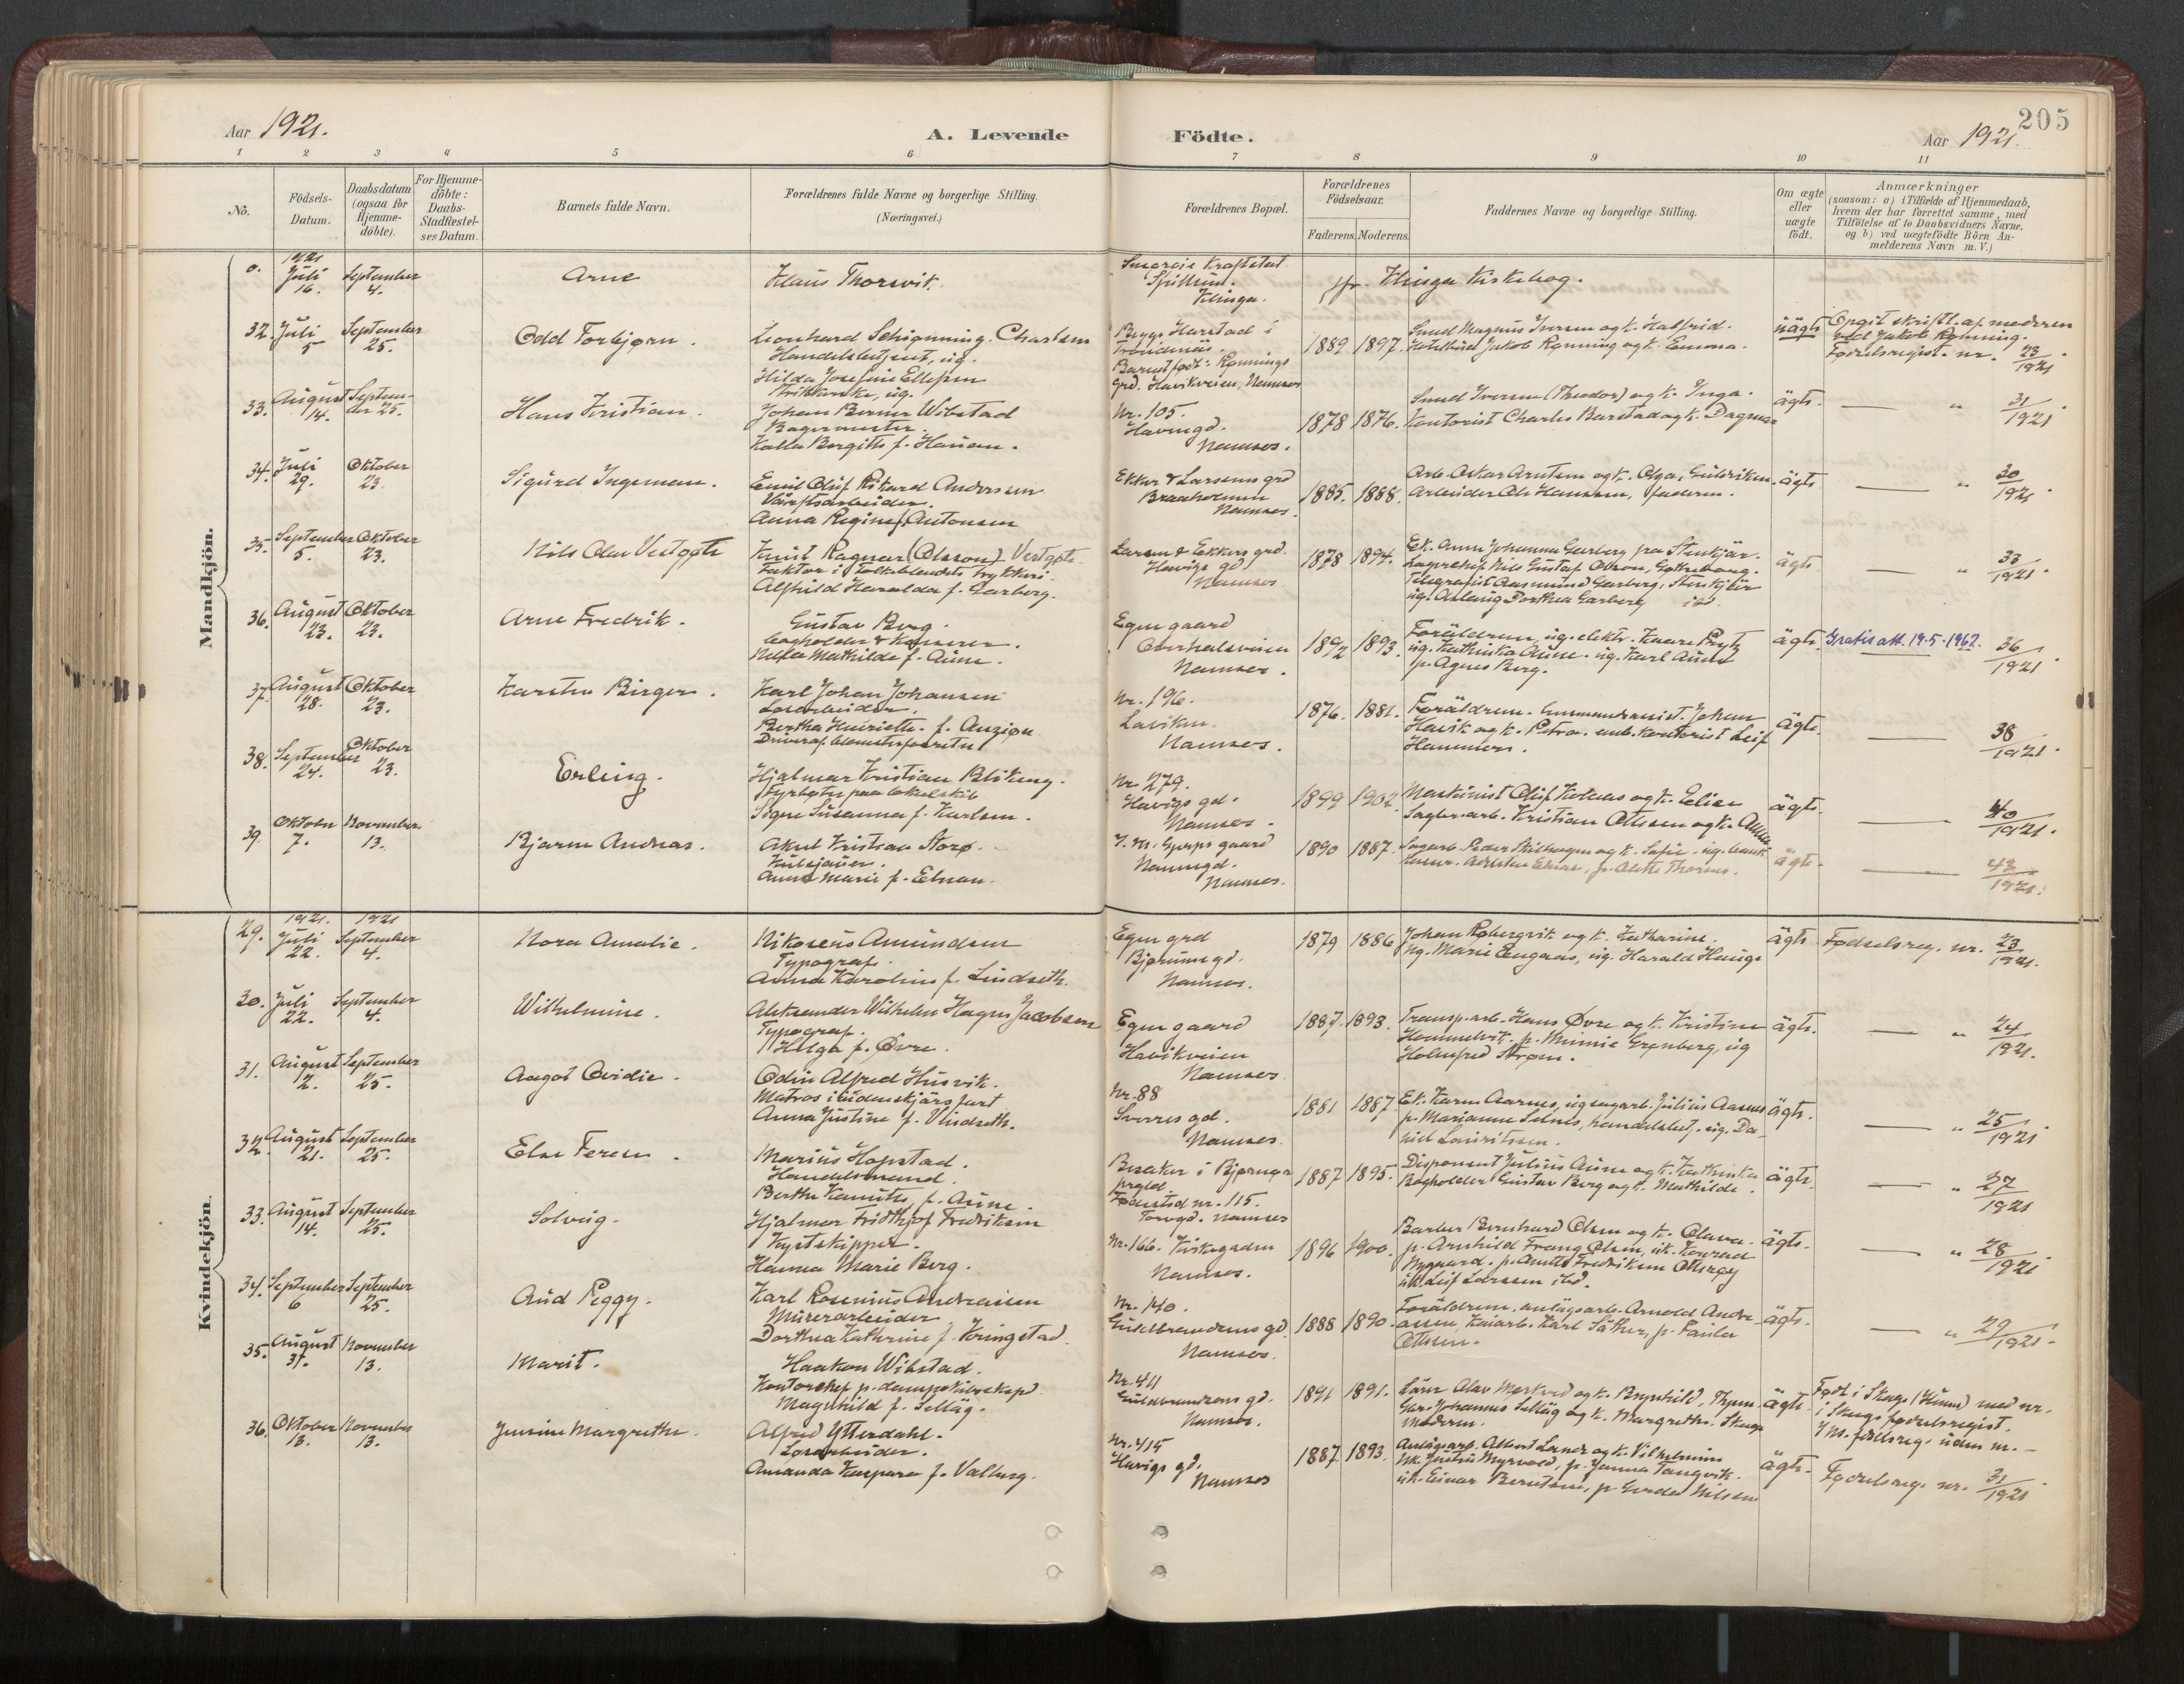 205
Aar 1921.
A. Levende
Födte.
Aar 1921.
1 2 3 4 5 6 7 8 9 10 11
No.
Födsels-
Datum.
Daabsdatum
(ogsaa for
Hjemme-
döbte).
For Hjemme-
döbte:
Daabs-
Stadfæstel-
ses Datum.
Barnets fulde Navn.
Forældrenes fulde Navne og borgerlige Stilling.
(Næringsvei.)
Forældrenes Bopæl.
Forældrenes
Födselsaar.
Faderens. Moderens.
Faddernes Navne og borgerlige Stilling.
Om ægte
eller
uægte
födt.
Anmærkninger
(saasom: a) i Tilfælde af Hjemmedaab,
hvem der har forrettet samme, med
Tilföielse af to Daabsvidners Navne.
og b) ved uægtefödte Börn An-
melderens Navn m. V.)
Mandkjön.
0.
1921
Juli
16.
September
4.
Arne
Klaus Thorsvik.
Spillum.
Klinga.
Klinga Kirkebog.
32.
Juli
5
September
25.
Odd Torbjørn.
Leonhard Charlsen
Handelsbetjent, ug.
Hilda Josefine Ellefsen
ug.
Begge Harstad i
Trondenäs.
Barnet født: Rønnings
grd. Havikveien, Namsos
1889 1897.
Smed Magnus Iversen og k. Halfrid.
Jakob Rønning og k. Emma.
üägte
Opgit skriftl. af moderen
ved Jakob Rønning.
Fødselsregist. nr. 23/1921.
33.
August
14.
Septem-
ber 25.
Hans Kristian.
Johan Berner Wibstad
Bagermester.
Kalla Bergitte f. Hauan.
Nr. 105.
Havnegd.
Namsos.
1878 1876.
Smed Iversen (Theodor) og k. Inga.
Kontorist Charles Barstad og k. Dagmar
ägte.
" 31/1921
34.
Juli
29.
Oktober
23.
Sigurd Ingeman.
Emil Oluf Rikard Andersen
Anna Regine f. Antonsen
Ekker & Larsens grd
Braaholmen
Namsos.
1885. 1888.
Arb. Oskar Arntsen og k. Olga,
Arbeider Ole Hansen, faderen.
ägte
" 30/1921.
35.
September
5.
Oktober
23.
Nils Olav Vestgøte
Knut Ragnar (Olsson) Vestgøte.
Faktor i Folkebladets trykkeri.
Alfhild Haralda f. Garberg.
Larsen & Ekkers grd.
Havigs gd
Namsos
1878 1894.
Ek. Anne Johanna Garberg fra Stenkjär.
Lagerchef Nils Gustaf Olson, Gøteborg.
Telegrafist Aasmund Garberg, Stenkjär
ug. Aslaug Dorthea Garberg ibd.
ägte
" 33/1921.
36.
August
23.
Oktober
23.
Arne Fredrik.
Gustav Berg.
bogholder & kasserer.
Mathilde f. Aune.
Egen gaard
Overhalsveien
Namsos.
1892 1893.
Foräldrene, ug. elektr. Kaare Prytz
ug. Kathinka Aune. ug. Karl Aune
p. Agnes Berg.
ägte.
Gratis att. 19.5.1962.
36/1921.
37.
August
28.
Oktober
23.
Karsten Birger.
Karl Johan Johansen
Løsarbeider.
Bertha Henriette f. Auzion
Nr. 196.
Laviken.
Namsos.
1876. 1881.
Foräldrene. Johan
Havik og k. Petra. Kontorist Leif
Hammer.
ägte.
38/1921.
38.
September
24.
Oktober
23.
Erling.
Hjalmar Kristian Blikeng.
Fyrbøter paa lokalskib
Signe Susanna f. Karlsen.
Nr. 279.
Havigs gd.
Namsos.
1899 1902.
Maskinist Oluf Kolaas og k. Elise
Sagbr.arb. Kristian Ottesen og k. Anna
ägte
40/1921.
39.
Oktober
7.
November
13.
Bjarne Andreas.
Aksel Kristian Storø.
Kulsjauer.
Anna Marie f. Elnan.
gaard
Namsos.
1890 1887.
ägte.
42/1921.
Kvindekjön.
29.
1921.
Juli
22.
1921
September
4.
Nora Amalie.
Nikoseus Amundsen
Typograf.
Anna Karoline f. Lindseth.
Egen grd
Bjørumgd.
Namsos.
1879 1886
Johan Røbergvik og k. Katharine.
Ug. Marie Engaas, ug. Harald Hauge
ägte
Fødselsreg. nr. 23/1921.
30.
Juli
22.
September
4.
Wilhelmine.
Aleksander Wilhelm Hagen Jacobsen
Typograf.
Helga f. Øvre.
Egen gaard
Havikveien
Namsos
1887. 1893.
Transp.arb. Hans Øvre og k. Kristine
Hommelvik. p. Minnie Grønberg, ug
Holmfred Strøm.
ägte.
" 24/1921.
31.
August
2.
September
25.
Aagot Ovidie.
Odin Alfred Husvik.
Matros i udenskjärsfart
Anna Justine f. Vindseth.
Nr. 88
Sverres gd.
Namsos.
1881 1887
Ek. Karen Aarnes, ug sagarb. Julius Aasnes
p. Marianne Selnes, handelsbetj. ug. Da-
niel Lauritsen.
ägte.
" 25/1921
32.
August
21.
September
25.
Else Teresie.
Marius Hopstad.
Handelsmand.
Berthe Kamitha, f. Aune.
Besaker i Bjørnør
prgld.
Fødested nr. 115.
Torvgd. Namsos
1887 1895.
Disponent Julius Aune og k. Kathinka
Bogholder Gustav Berg og k. Mathilde.
ägte.
" 27/1921
33.
August
14.
September
25.
Solveig.
Hjalmar Fridthjof Fredriksen
Kystskipper.
Hanna Marie Berg.
Nr. 166. Kirkegaden
Namsos.
1896 1900.
Barber Bernhard Olsen og k. Olava.
p. Arnhild Frang Olsen, uk. Konrad
Nygaard. p. Anette Fredriksen Otterøy
uk. Leif Larssen ibd.
ägte.
" 28/1921.
34.
September
6
September
25.
Aud Peggy.
Karl Rosenius Andreassen
Murerarbeider
Dorthea Kathrine f. Kringstad.
Nr. 140.
Guldbrandsens gd.
Namsos.
1888 1890.
Foräldrene. anlägsarb. Arnold Andre-
assen, Kaiarb. Karl Säther, p. Paula
Ottesen.
ägte.
" 29/1921.
35.
August
31.
November
13.
Marit.
Haakon Wibstad.
Kontorchef p. dampskibsexped.
Magnhild f. Selläg.
Nr. 411
Guldbrandsens gd.
Namsos.
1891 1891.
Lärer Olav Merkved og k. Brynhild,
Gbr. Johannes Selläg og k. Margrethe. Skage
Moderen.
ägte.
Født i Skage (Hunn) med nr.
i Skage fødselsregist.
fødselsreg. uden nr. —
36.
Oktober
13.
November
13.
Jensine Margrethe.
Alfred Ytterdahl.
Løsarbeider.
Amanda Kaspara f. Valberg.
Nr. 415
Havigs gd.
Namsos
1887. 1893.
Anlägsarb. Albert Lund og k. Vilhelmine
Uk. Justin Myrvold, p. Janna Tangvik.
uk. Einar Berntsen, p. Gerda Nilsen
ägte.
Fødselsreg. nr. 31/1921.